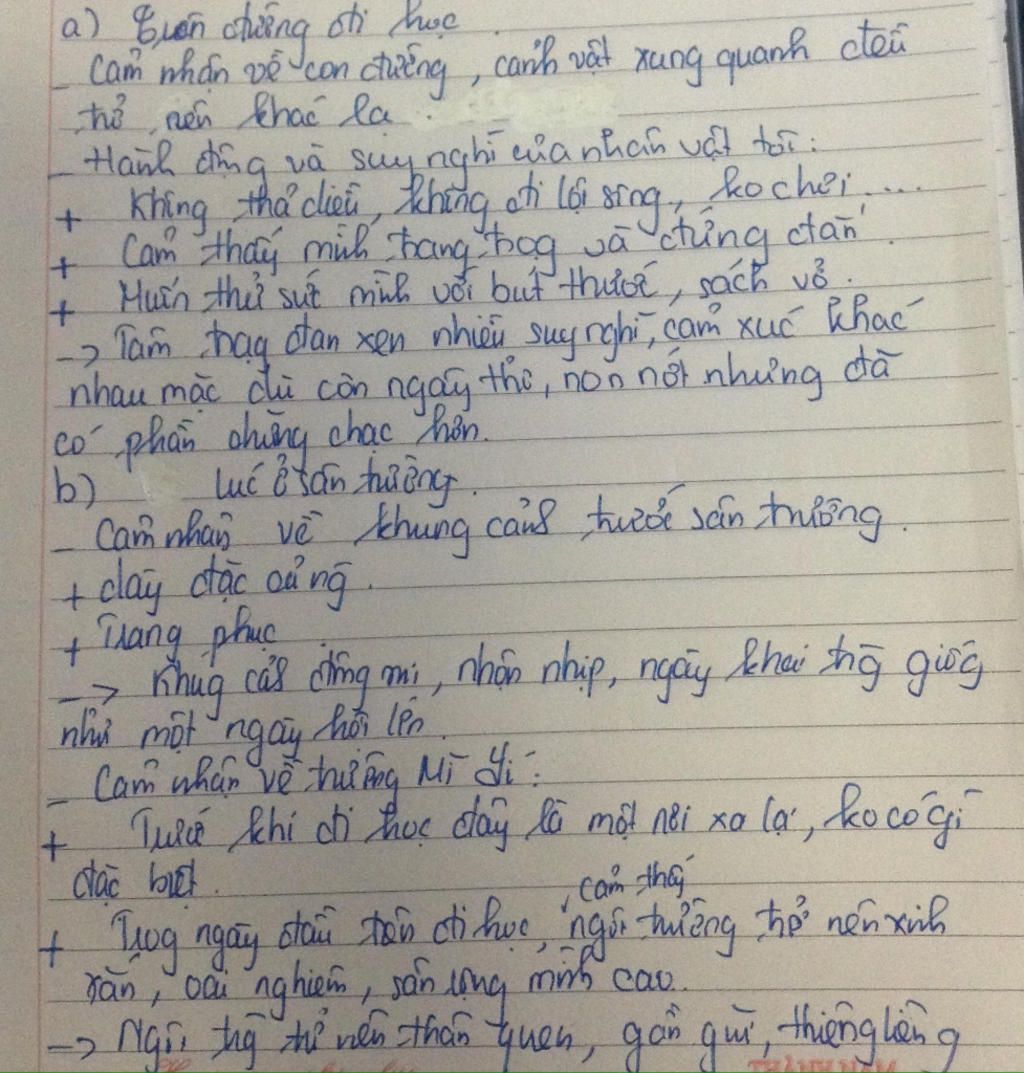 a) Trên đường đi học.
- Cảm nhận về con đường, cảnh vật xung quanh đều
trở nên khác lạ.
- Hành động và suy nghĩ của nhân vật tôi:
+ Không thả diều, không đi lội sông, ko chơi....
+ Cảm thấy mình trang trọg và đứng đắn.
+ Muốn thử sức mình với bút thước, sách vở.
-> Tâm trạg đan xen nhiều suy nghĩ, cảm xúc khác
nhau mặc dù còn ngây thơ, non nớt nhưng đã
có phần chững chạc hơn.
b) Lúc ở sân trường.
- Cảm nhận về khung cảnh trước sân trường.
+ dày đặc cả ng̃.
+ Trang phục
-> Khug cảh đông vui, nhộn nhịp, ngày khai trg̃ giống
như một ngày hội lớn.
- Cảm nhận về trường Mĩ Lí:
+ Trước khi đi học đây là một nơi xa lạ, ko có gì
đặc biệt.
, cảm thấy
+ Trog ngày đầu tiên đi học, ngôi trường trở nên xinh
xắn, oai nghiêm, sân rộng mình cao.
-> Ngôi trg̃ trở nên thân quen, gần gũi, thiêng liêng